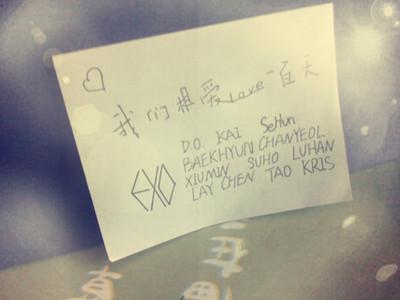 我们相爱Love一百天
D.O. KAI SeHun
BAEKHYUN CHANYEOL
EXO XIUMIN SUHO LUHAN
LAY CHEN TAO KRIS